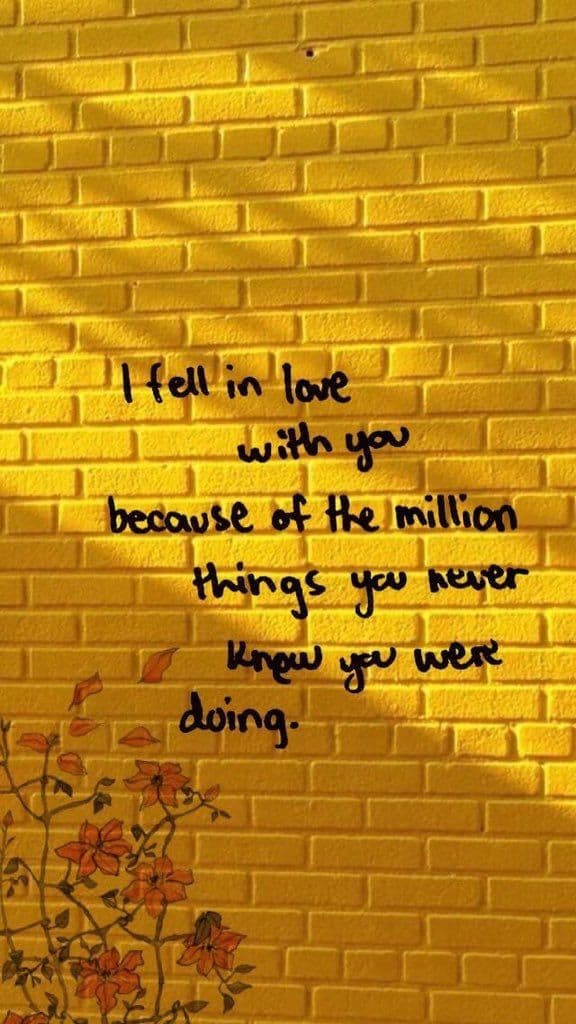 I fell in love
with you
because of the million
things you never
knew you were
doing.